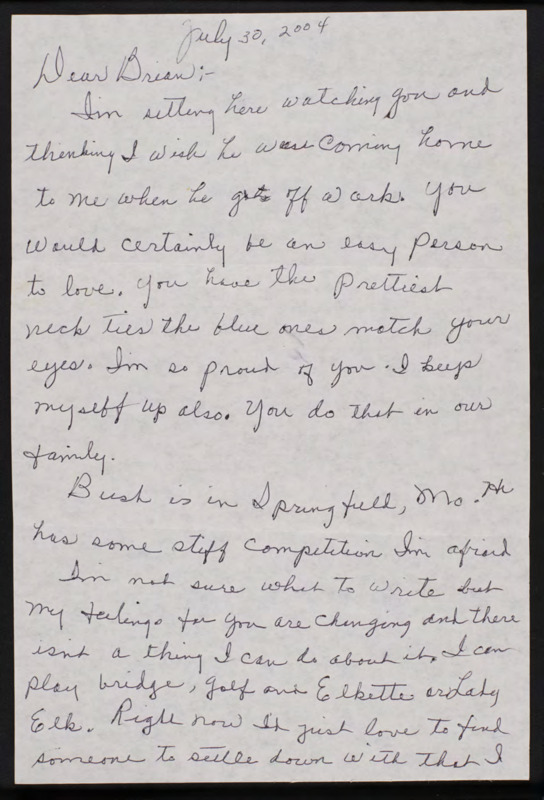 July 30, 2004
Dear Brian;-
I'm sitting here watching you and
thinking I wish he was coming home
to me when he gets off work. You
would certainly be an easy person
to love. You have the prettiest
neck ties the blue ones match your
eyes. I'm so proud of you. I keep
myself up also. You do that in our
family.
Bush is in Springfield, Mo. He
has some stiff competition I'm afriad
I'm not sure what to write but
my feelings for you are changing and there
isnt a thing I can do about it. I can
play bridge, golf and Elkette or Lady
Elk. Right now I'd just love to find
someone to settle down with that I